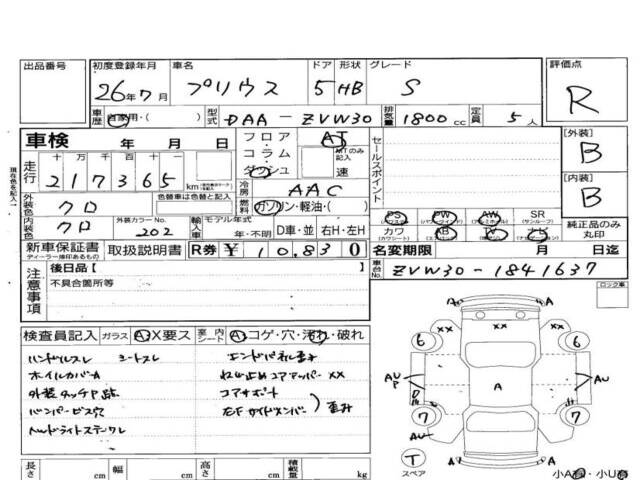 出品番号 初度登録年月 車名 ドア 形状 グレード 評価点
26年7月 プリウス 5 HB S R
車歴 自家用・( ) 型式 DAA-ZVW30 排気量 1800cc 定員 5人
車検 年 月 日 フロア・コラム・ダッシュ AT MTのみ記入 速 セールスポイント [外装] B
現在色を記入
走行 十 万 千 百 十 一
217365 km 冷房 AAC [内装] B
外装色 クロ 色替車は色替と記入 燃料 ガソリン・軽油・( )
外装カラーNo. 202 輸入車 モデル年式 年・不明 D車・並 右H・左H
内装色 クロ
PS AW SR
カワ AB TV ナビ
(カワシート)
純正品のみ丸印
新車保証書 取扱説明書 R券 ¥10,830 名変期限 月 日迄
ディーラー捺印あるもの
注意事項 後日品【 】 車台No. ZVW30-1841637
不具合箇所等
ロック車
検査員記入 ガラス A・X要ス 室内シート A・コゲ・穴・汚れ・破れ
ハンドルスレ シートスレ エンドパネル
ホイルカバーA コアアッパー XX
外装タッチP跡 コアサポート
バンパービス穴 左F サイドメンバー 歪み
ヘッドライトステンワレ
A A
XX XX
6 6
AU P A AU
7 7
AU
T
スペア
A A
小A有・小U有
長さ cm 幅 cm 高さ cm 積載量 kg